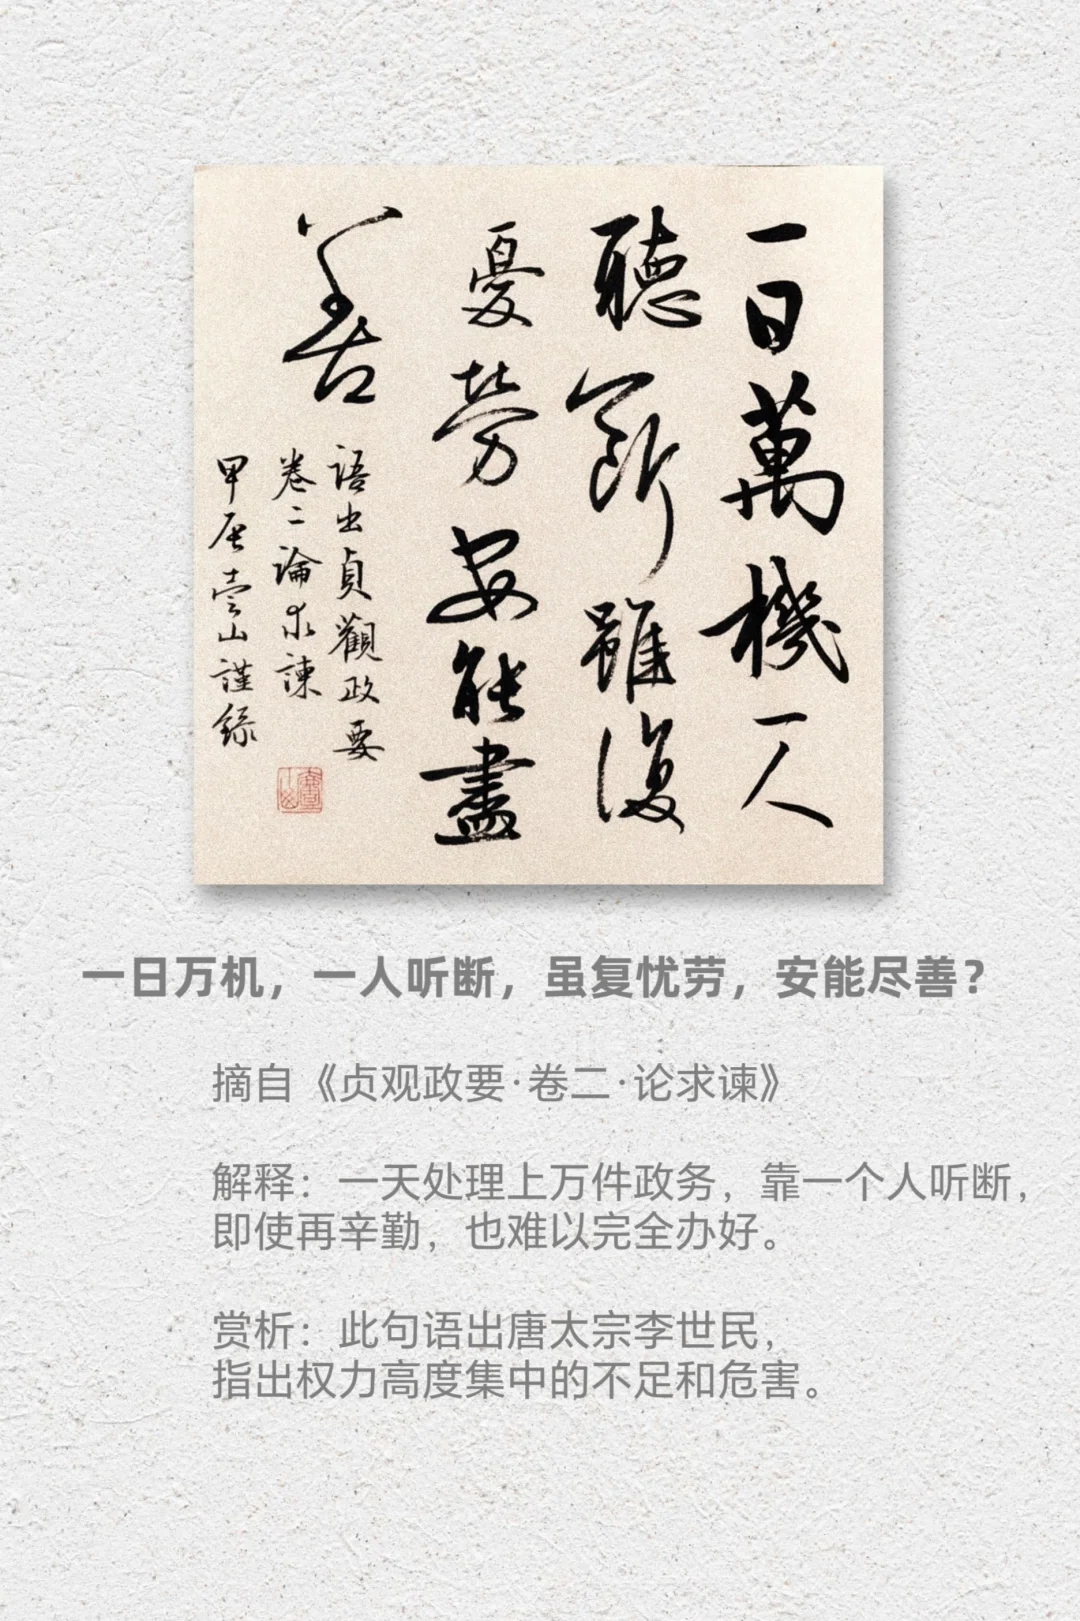 一日萬機一人
聽斷雖復
憂勞安能盡
善
語出貞觀政要
卷二論求諫
甲辰壹山謹錄
一日万机，一人听断，虽复忧劳，安能尽善？
摘自《贞观政要·卷二·论求谏》
解释：一天处理上万件政务，靠一个人听断，
即使再辛勤，也难以完全办好。
赏析：此句语出唐太宗李世民，
指出权力高度集中的不足和危害。